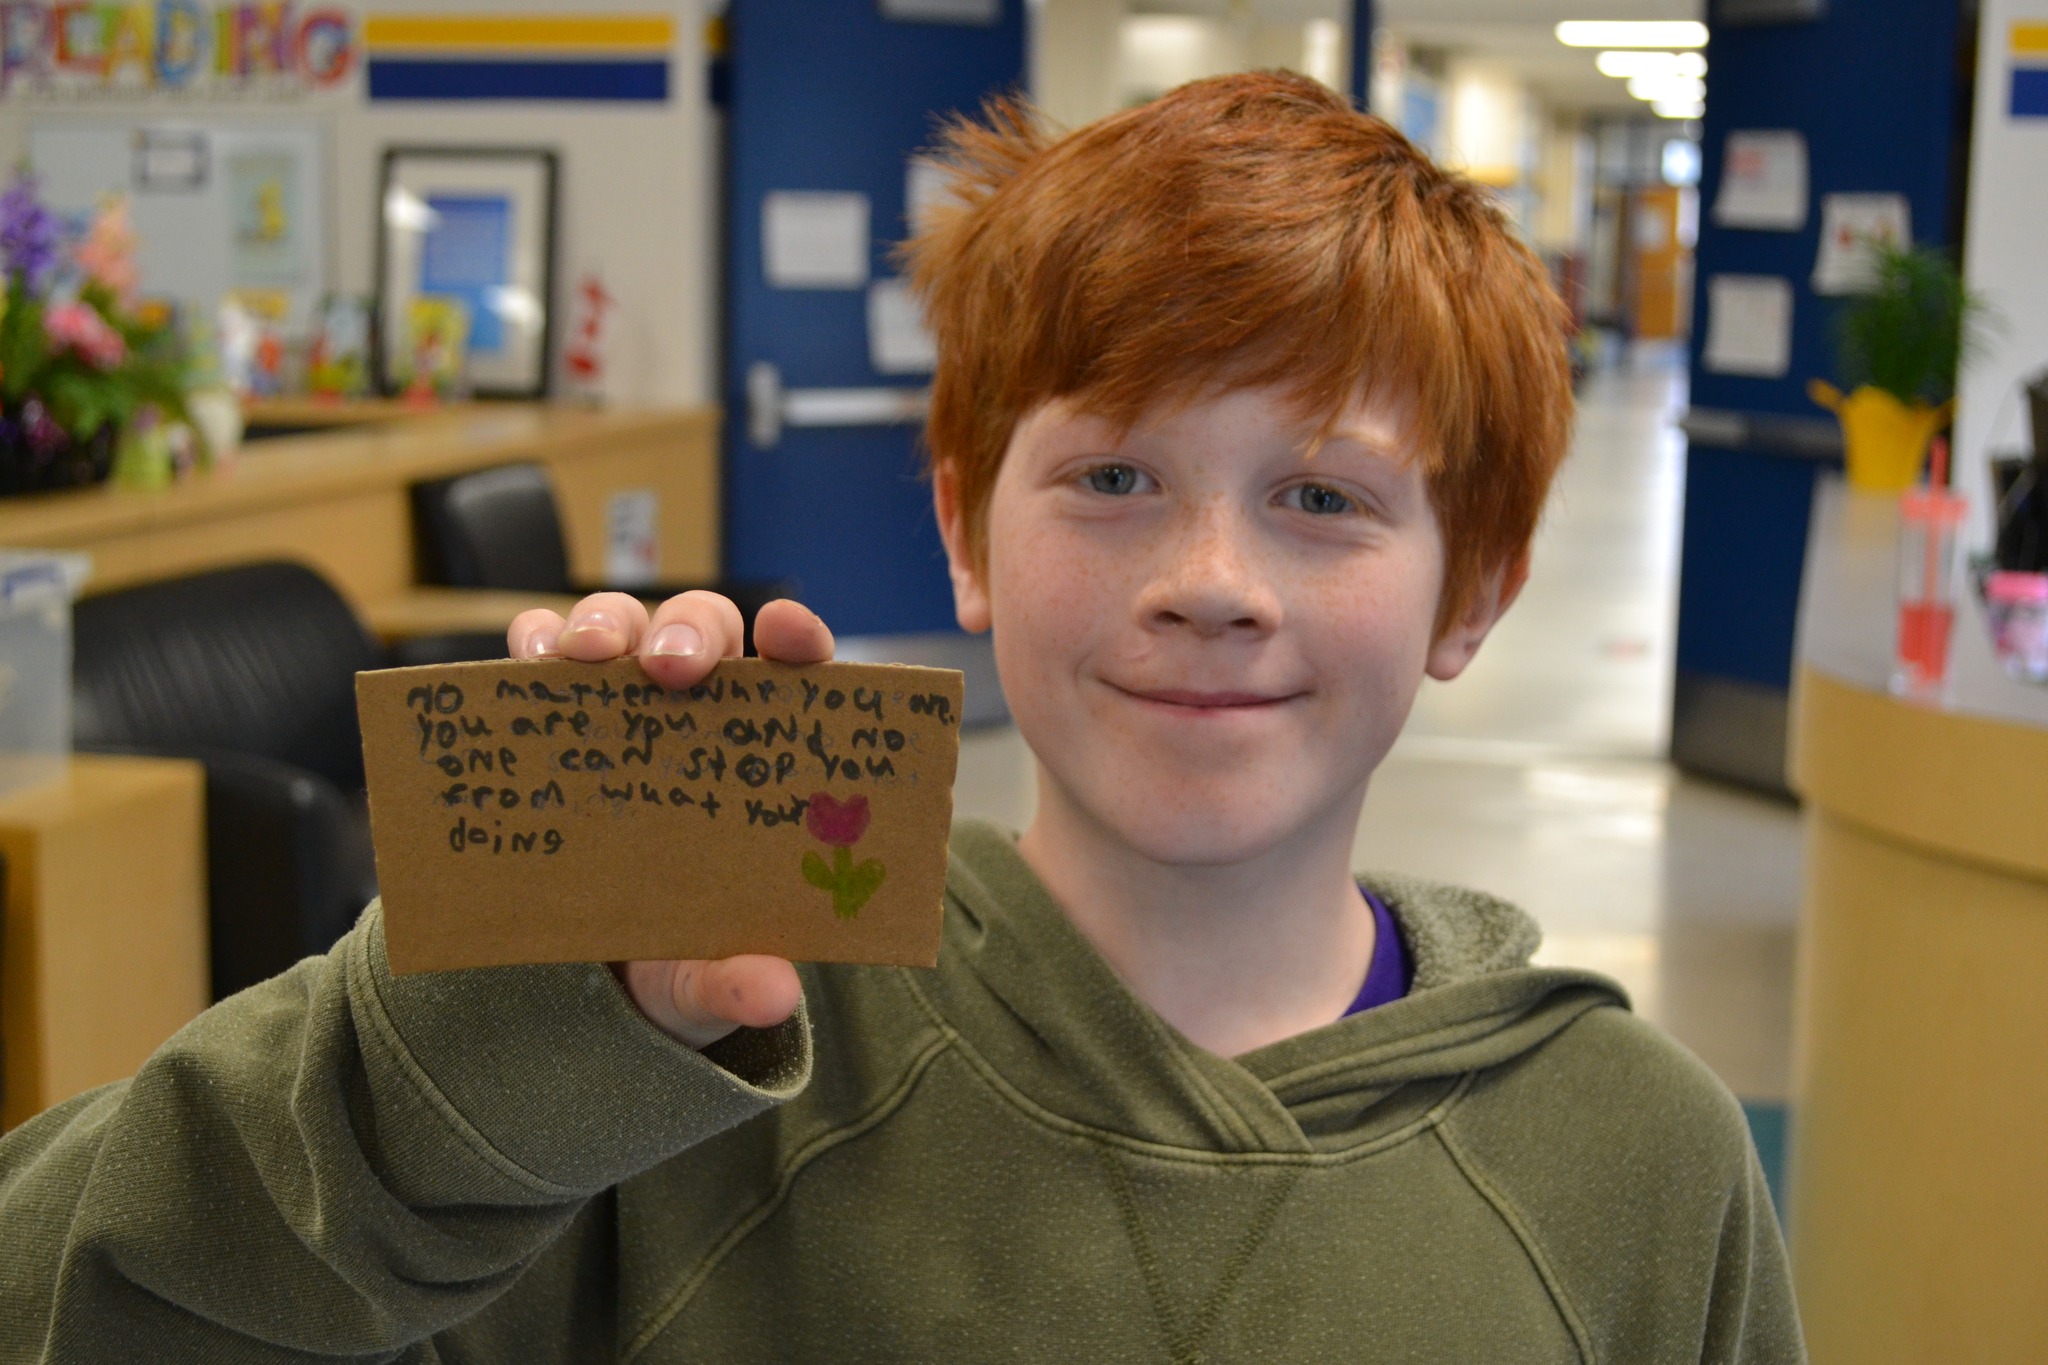 READING
No matter whr you are.
you are you and no
one can stop you
from what your
doing